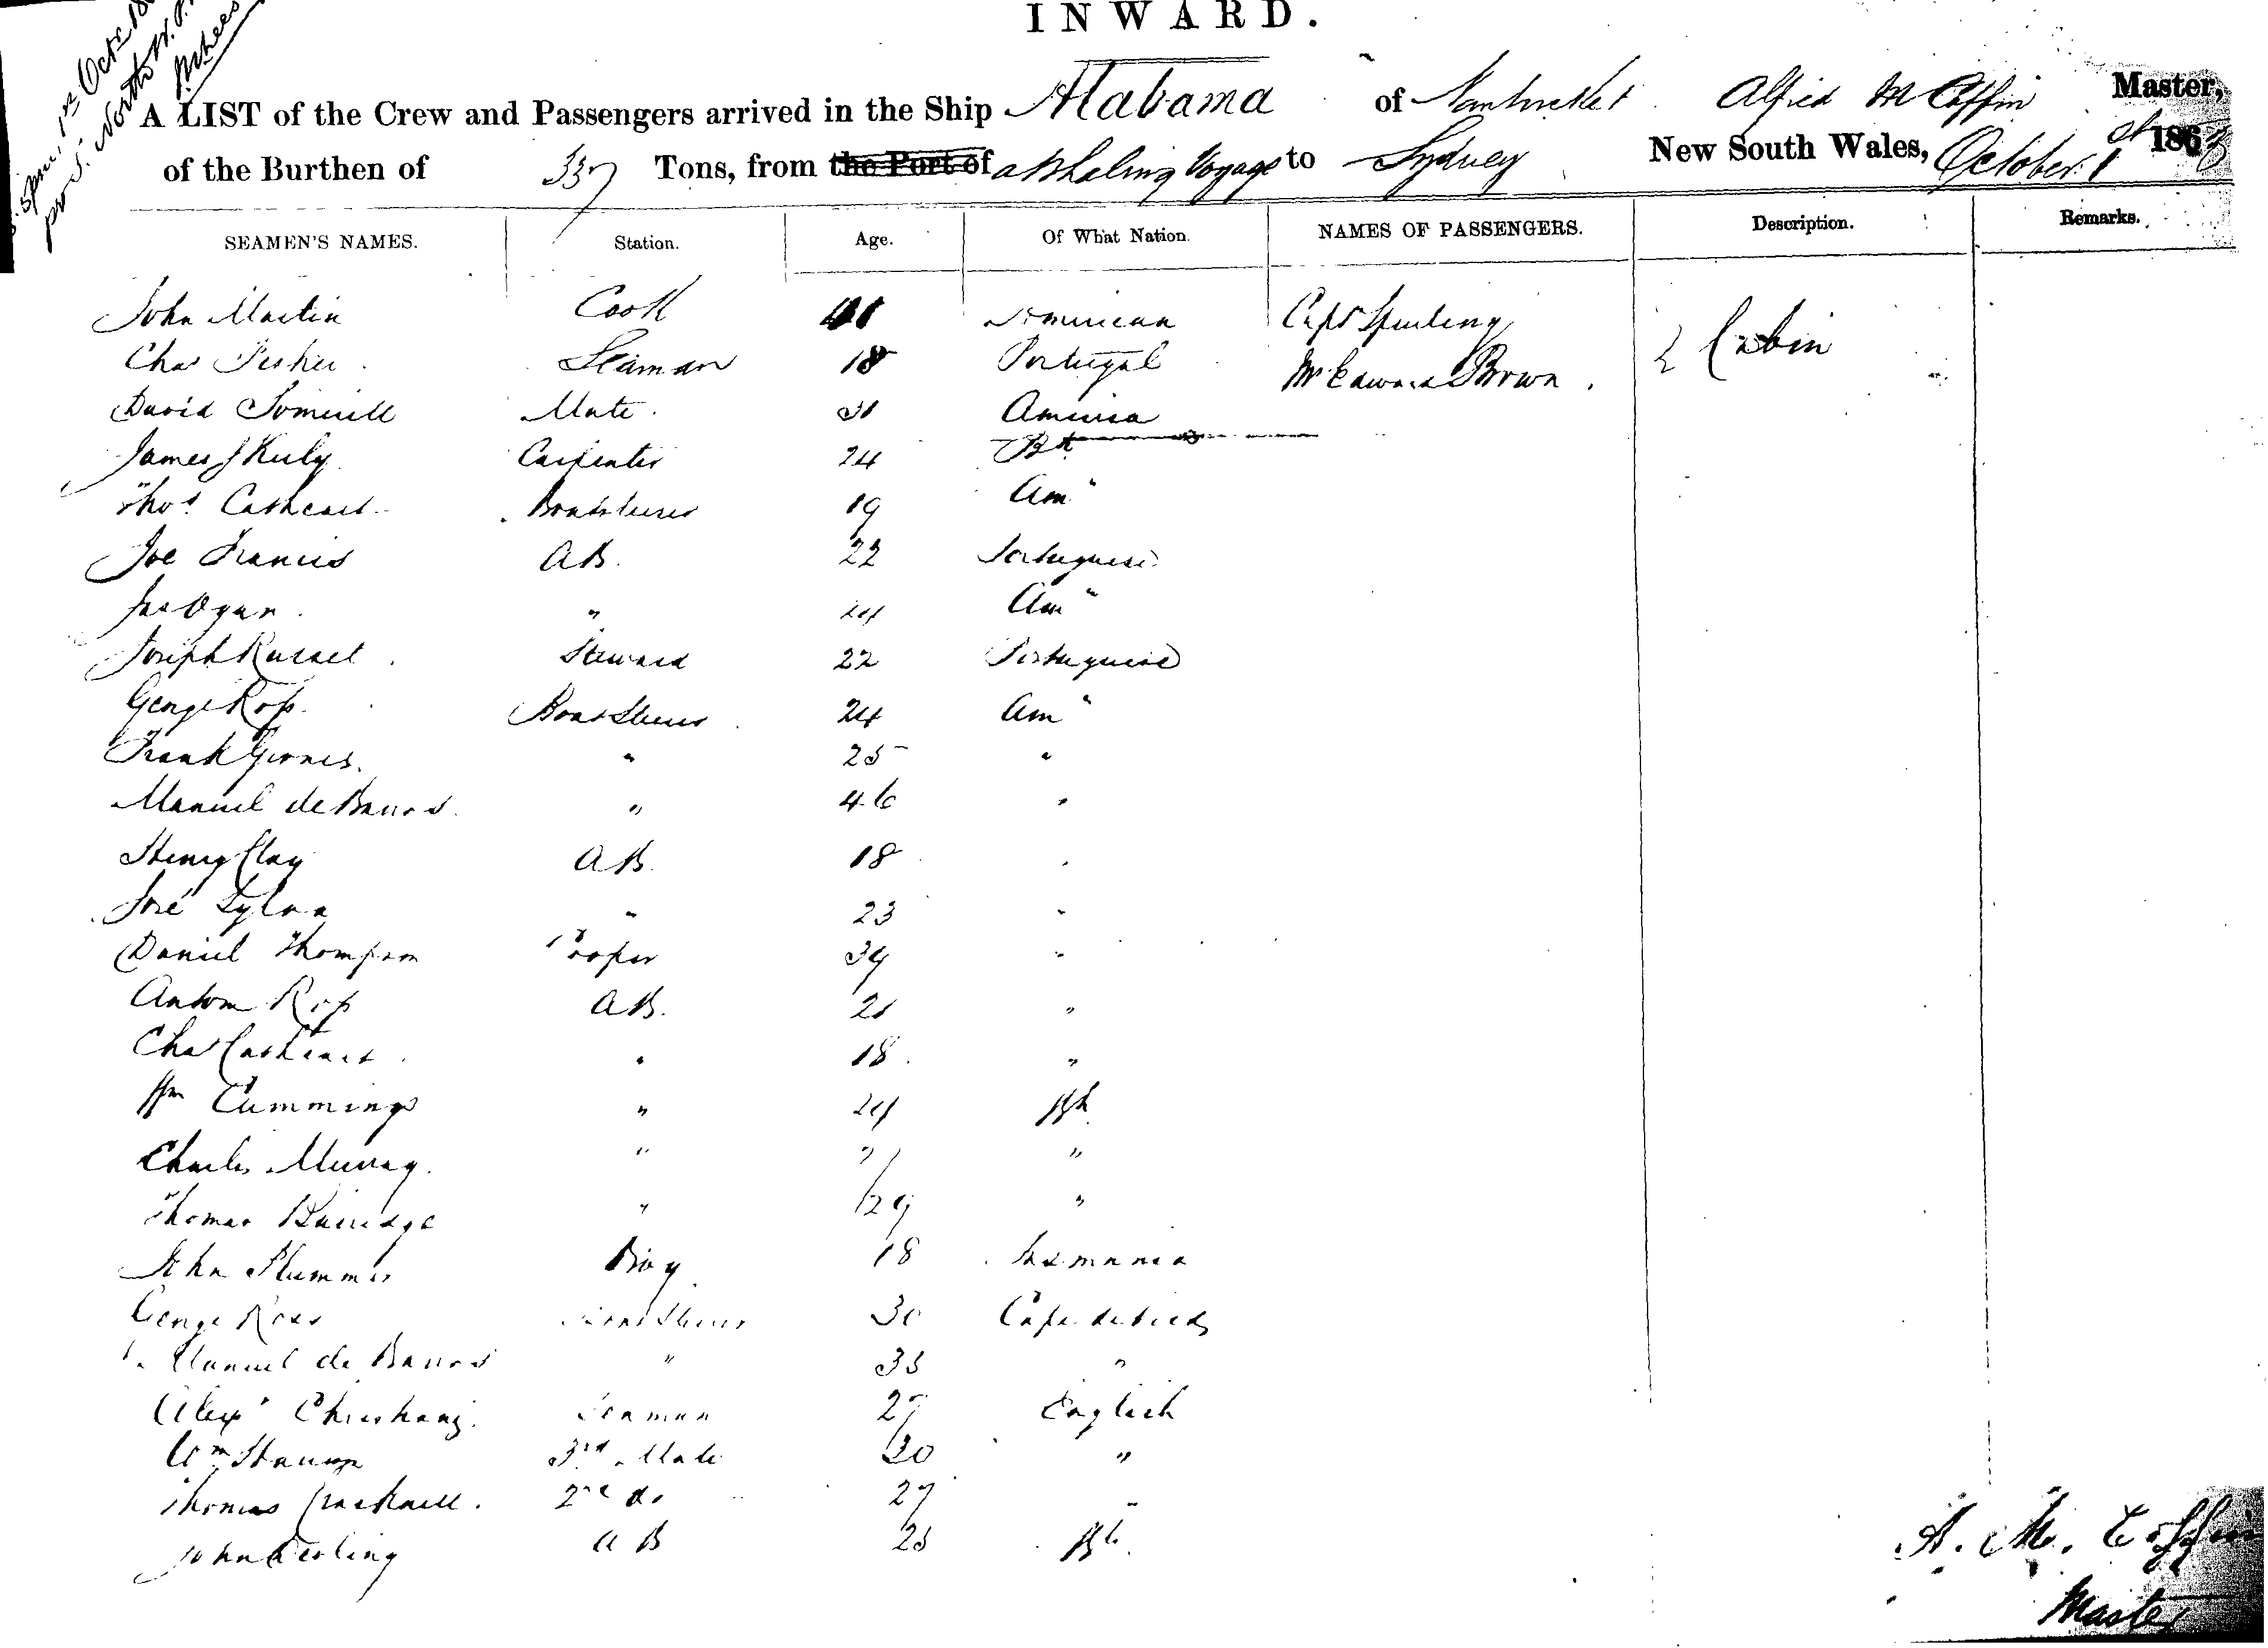 INWARD.
A LIST of the Crew and Passengers arrived in the Ship Alabama of Nantucket Alfred M Coffin Master,
of the Burthen of 337 Tons, from the Port of a Whaling Voyage to Sydney New South Wales, October 1st 186
SEAMEN'S NAMES. Station. Age. Of What Nation. NAMES OF PASSENGERS. Description. Remarks.
John Martin Cook Capt Spurling Cabin
Chas Seaman 18 Portugal Mr Edward Brown
David Mate 31 America
James Carpenter 24 Bh
Thos Cathcart Boatsteerer 19 Am"
Joe Francis AB. 22 Portuguese
Jas Ogan " 24 Am"
Joseph Russel Steward 22 Portuguese
George Ross Boatsteerer 24 Am"
Frank " 25 "
Manuel de Barros " 46 "
Henry Clay AB 18 "
José Sylva " 23 "
Daniel Thompson Cooper 39 "
Anton Ross AB. 21 "
Chas Cathcart " 18 "
Wm Cummings " 24 Bh
Charles Murray " "
Thomas Burridge " 29 "
John Plummer Boy 18 Tasmania
George Ross Boatsteerer 30 Cape de Verds
Manuel de Barros " 35 "
Alexr Seaman 27 English
Wm 3rd Mate 20 "
Thomas Cracknell 2nd do 27 "
John AB 25 Bh
A. M. Coffin
Master